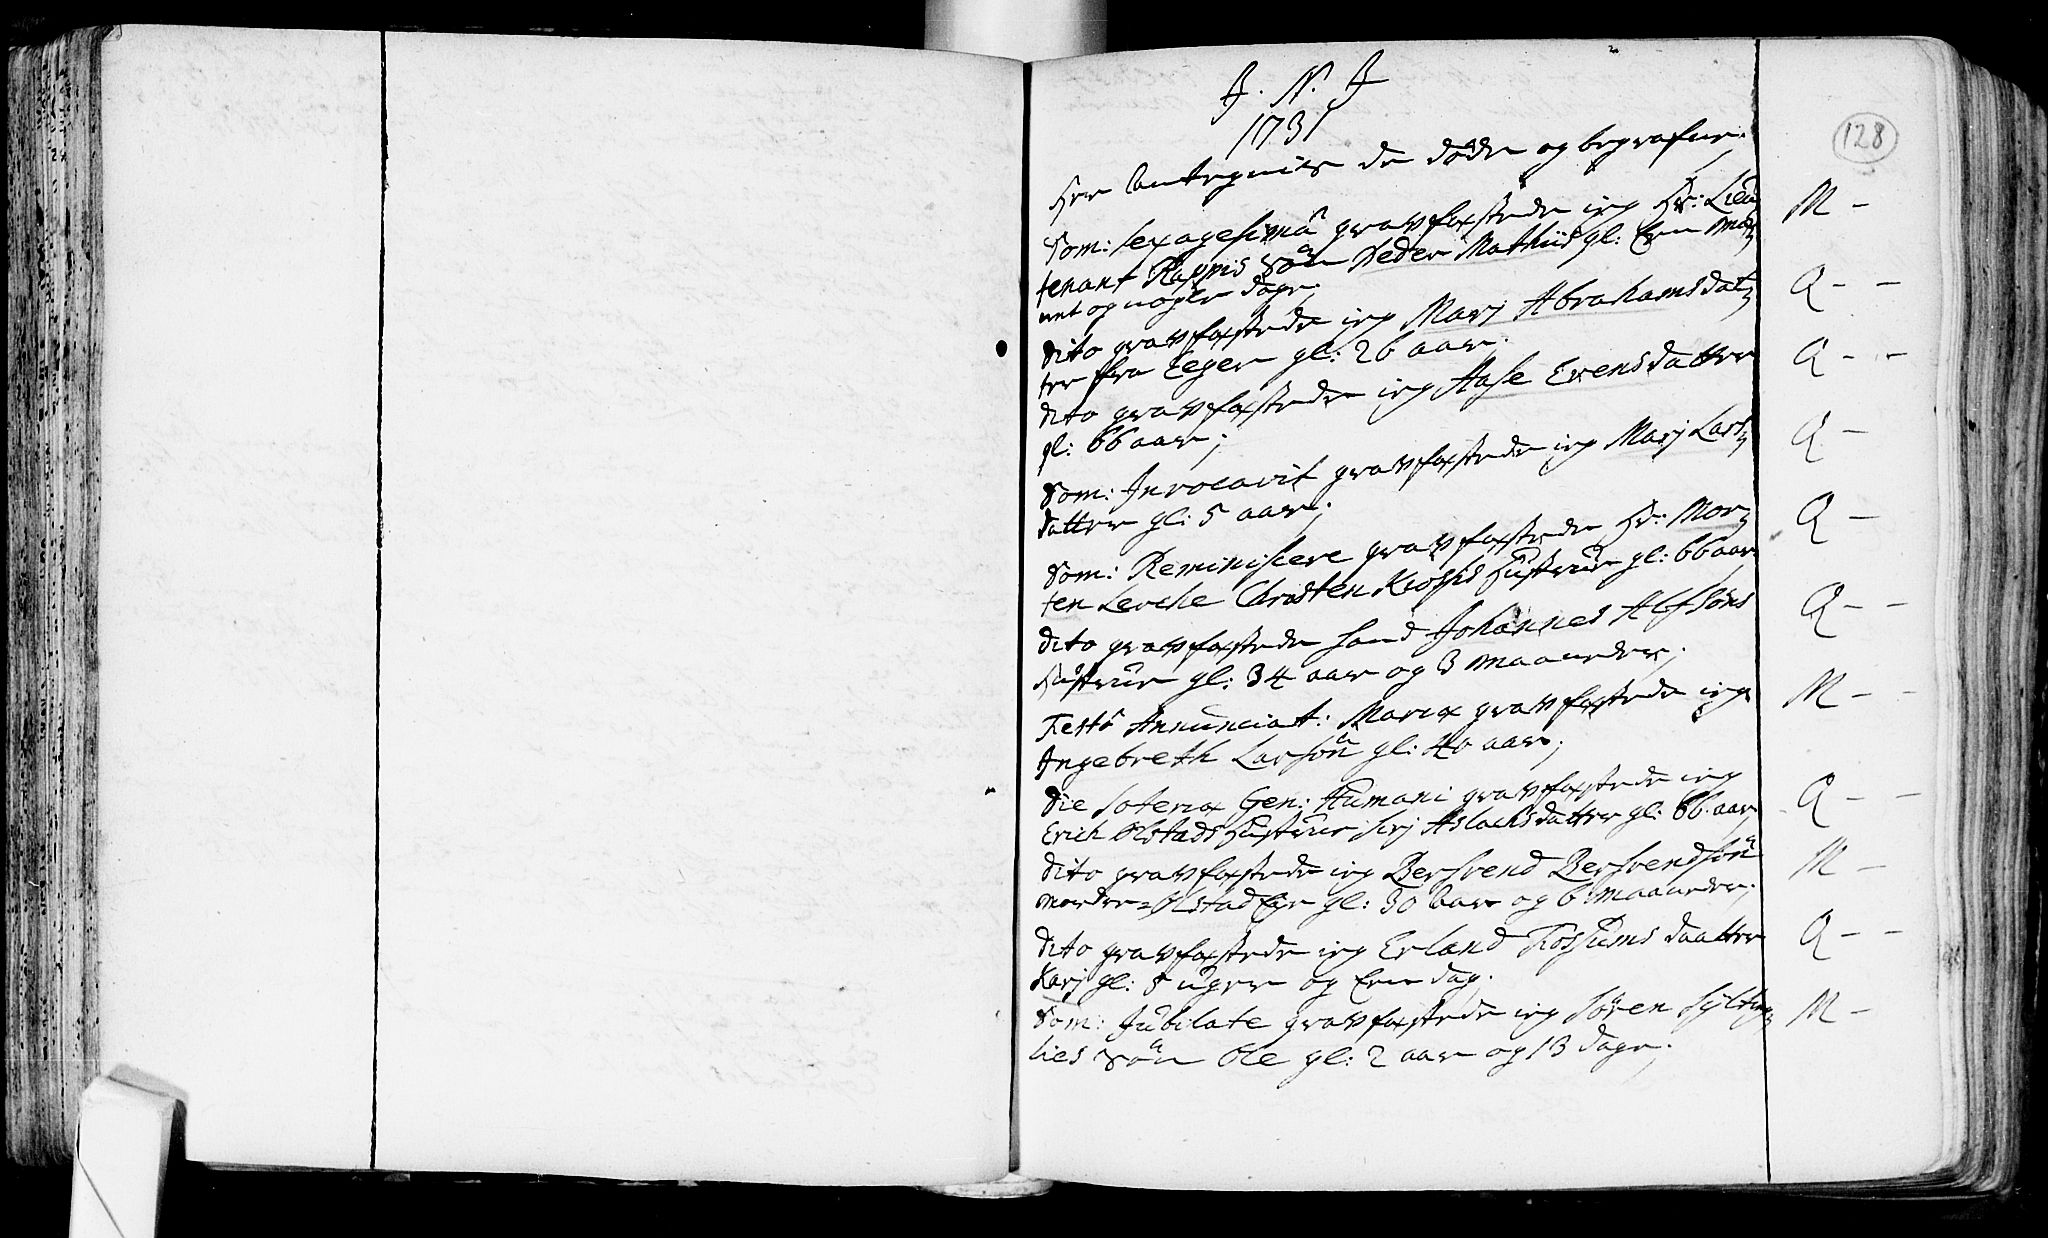 J. N. J
1731
128
Her Antegnis de døde og begrafne.
Dom: Sexagesimâ gravfæstede ieg Hr: Lieu,
tenant Rappis Søn Peder Mathiis gl: Een Maa,
net og nogle dage;
M -
Dito gravfæstede ieg Marj Abrahamsdat,
ter fra Eeger gl: 26 aar.
Q - -
dito gravfæstede ieg Aase Evensdatter
gl: 66 aar;
Q - -
Dom: Invocavit gravfæstede ieg Marj Lars,
datter gl: 5 aar;
Q -
Dom: Reminiscere gravfæstede Hr: Mor,
ten Lerche Christen Hustrue gl: 66 aar
Q -
dito gravfæstede Johannes Alfsøns
Hustrue gl: 34 aar og 3 maaneder;
Q - -
Festô Annunciat: Mariæ gravfæstede ieg
Ingebreth Larsøn gl: 40 aar;
M - -
Die Soteriæ Gen: Humani gravfæstede ieg
Erich Olstads Hustrue Sirj Aslachsdatter gl: 66 aar
Q - -
dito gravfæstede ieg Bersvend Bersvendsøn
Olstad Eje gl: 30 aar og 6 Maaneder;
M -
dito gravfæstede ieg Erland Fossums daatter
Karj gl: 5 uger og Een dag;
Q - -
Dom: Jubilate gravfæstede ieg Søren
lies Søn Ole gl: 2 aar og 13 dage;
M -